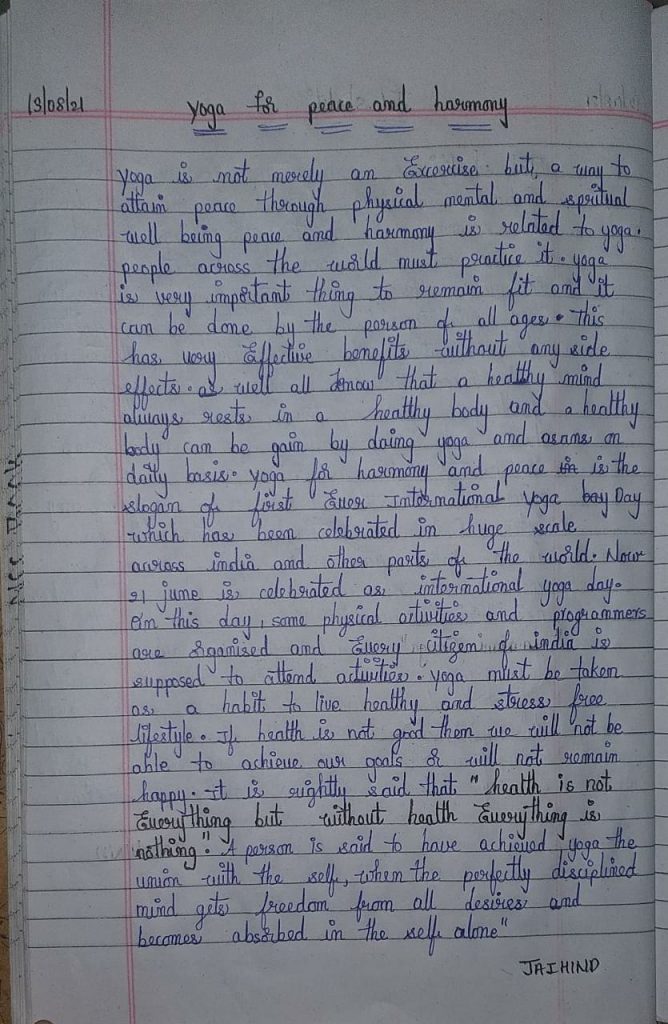 13/08/21 yoga for peace and harmony
yoga is not merely an Excercise but, a way to
attain peace through physical mental and spritual
well being peace and harmony is related to yoga.
people across the world must practice it. yoga
is very important thing to remain fit and it
can be done by the person of all ages. This
has very Effective benefits without any side
effects. as well all know that a healthy mind
always rests in a healthy body and a healthy
body can be gain by doing yoga and asans on
daily basis. yoga for harmony and peace is the
slogan of first Ever International yoga Day
which has been celebrated in huge scale
across india and other parts of the world. Now
21 june is celebrated as international yoga day.
On this day, some physical activities and programmers
are organised and Every citizen of india is
supposed to attend activities. yoga must be taken
as a habit to live healthy and stress free
lifestyle. If health is not good them we will not be
able to achieve our goals & will not remain
happy. it is rightly said that "health is not
Everything but without health Everything is
nothing". A person is said to have achieved yoga the
union with the self, when the perfectly disciplined
mind gets freedom from all desires and
becomes absorbed in the self alone"
JAIHIND